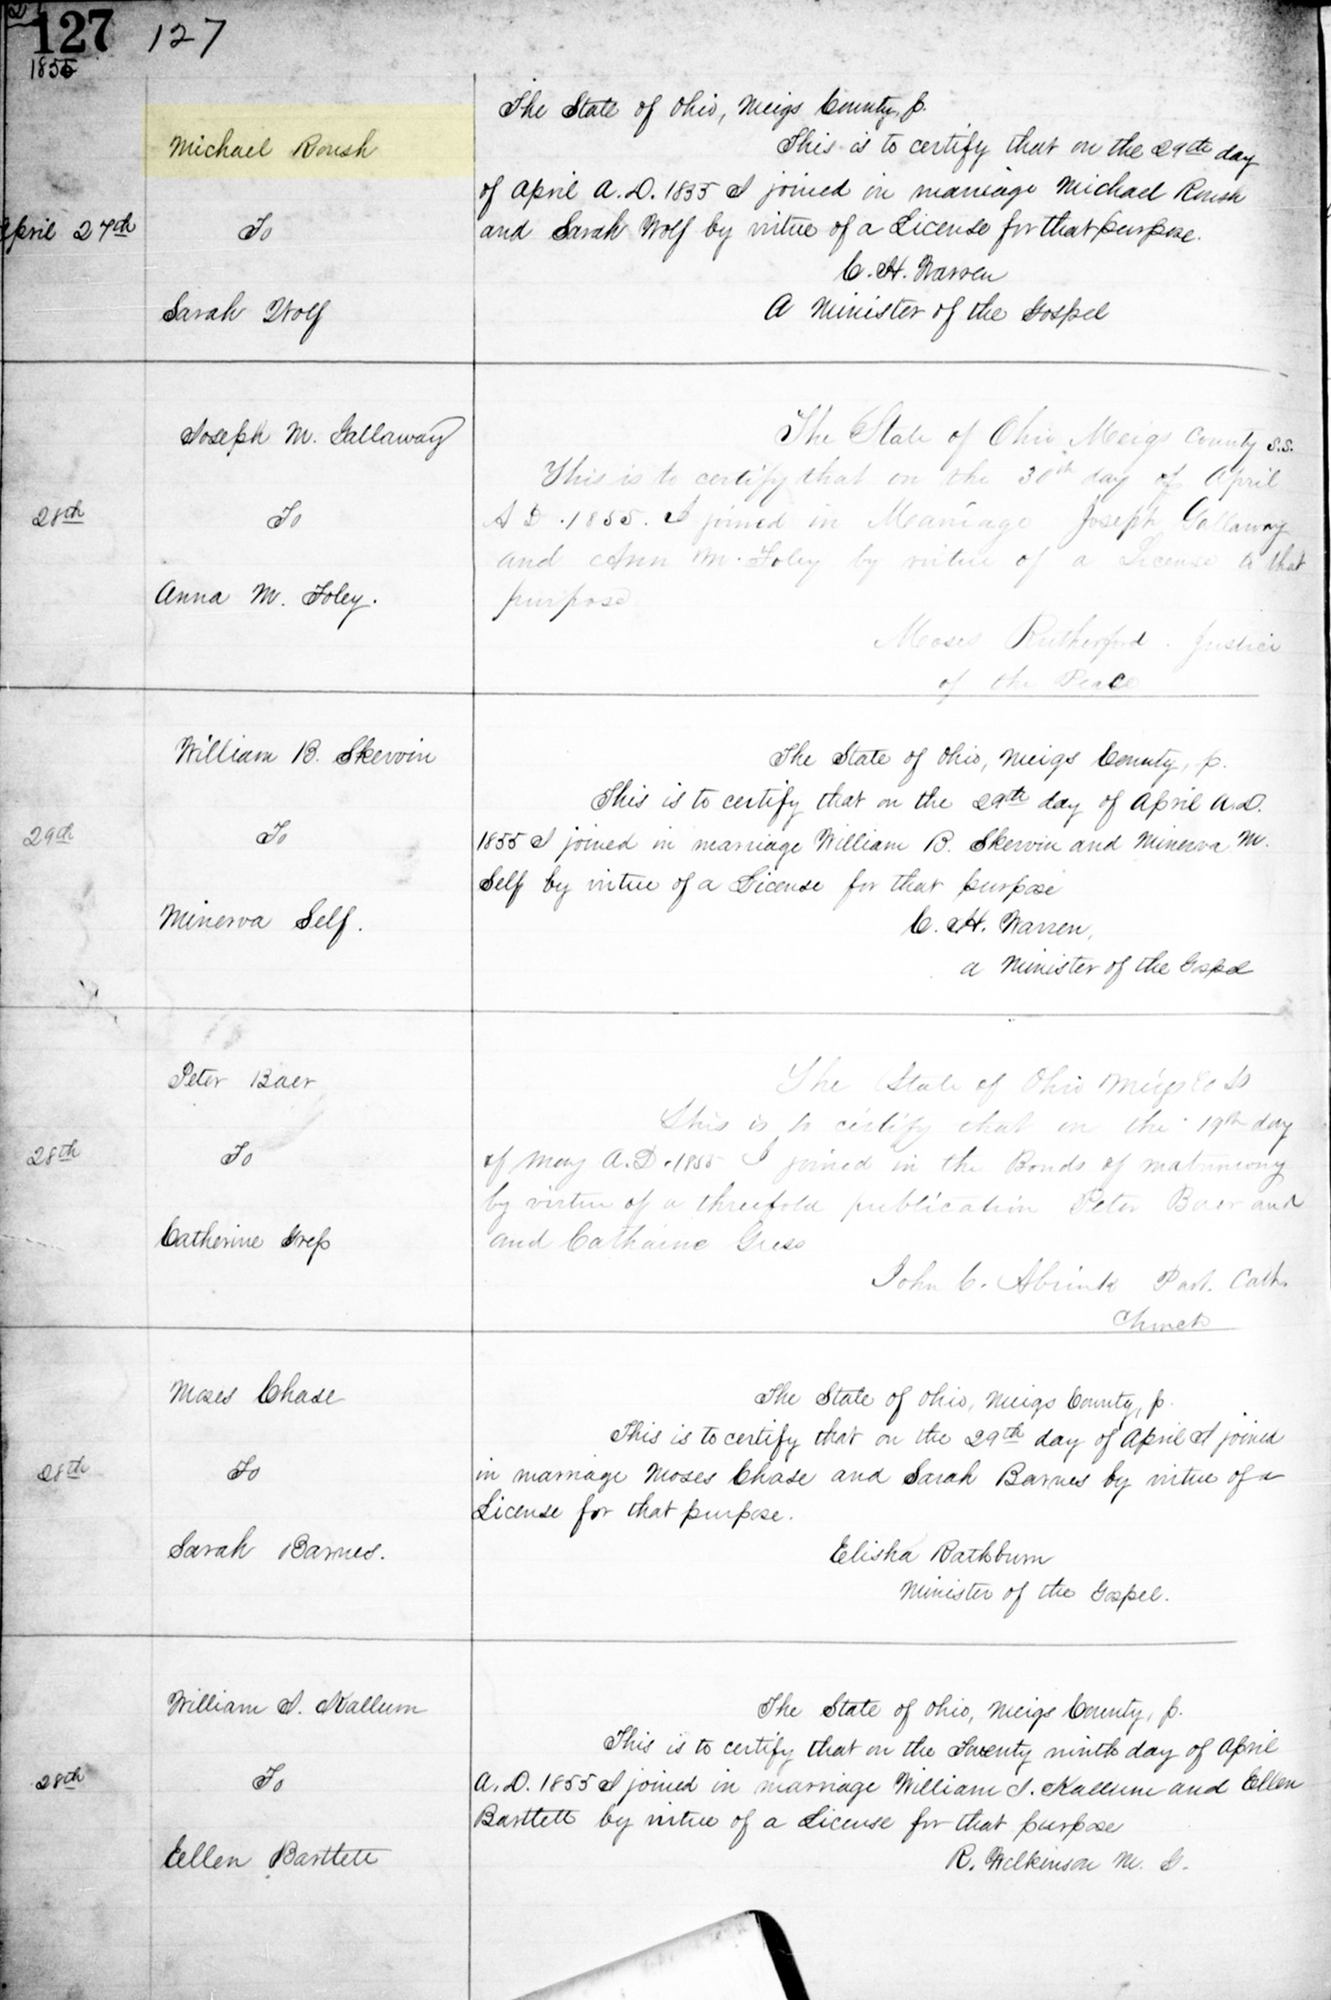 127 127
1855
Michael Roush
April 27th To
Sarah Wolf
The State of Ohio, Meigs County, ss.
This is to certify that on the 29th day
of April A.D. 1855 I joined in marriage Michael Roush
and Sarah Wolf by virtue of a License for that purpose.
C. H. Warren
A Minister of the Gospel
Joseph M. Gallaway
28th To
Anna M. Foley.
The State of Ohio Meigs County S.S.
This is to certify that on the 30th day of April
A D. 1855. I joined in Marriage Joseph Gallaway
and Ann M. Foley by virtue of a License to that
purpose
Moses Rutherford. Justice
of the Peace
William B. Skervin
29th To
Minerva Self.
The State of Ohio, Meigs County, ss.
This is to certify that on the 29th day of April A.D.
1855 I joined in marriage William B. Skervin and Minerva M.
Self by virtue of a License for that purpose
C. H. Warren,
a Minister of the Gospel
Peter Baer
28th To
Catherine Gress
The State of Ohio Meigs Co SS
This is to certify that on the 19th day
of May A.D. 1855 I joined in the Bonds of matrimony
by virtue of a threefold publication Peter Baer and
and Catharine Gress
John C. Albrink Past. Cath.
Church
Moses Chase
28th To
Sarah Barnes.
The State of Ohio, Meigs County, ss.
This is to certify that on the 29th day of April I joined
in marriage Moses Chase and Sarah Barnes by virtue of a
License for that purpose.
Elisha Rathburn
Minister of the Gospel.
William S. Kallum
28th To
Ellen Bartlett
The State of Ohio, Meigs County, ss.
This is to certify that on the Twenty ninth day of April
A.D. 1855 I joined in marriage William S. Kallum and Ellen
Bartlett by virtue of a License for that purpose
R. Wilkinson M. G.